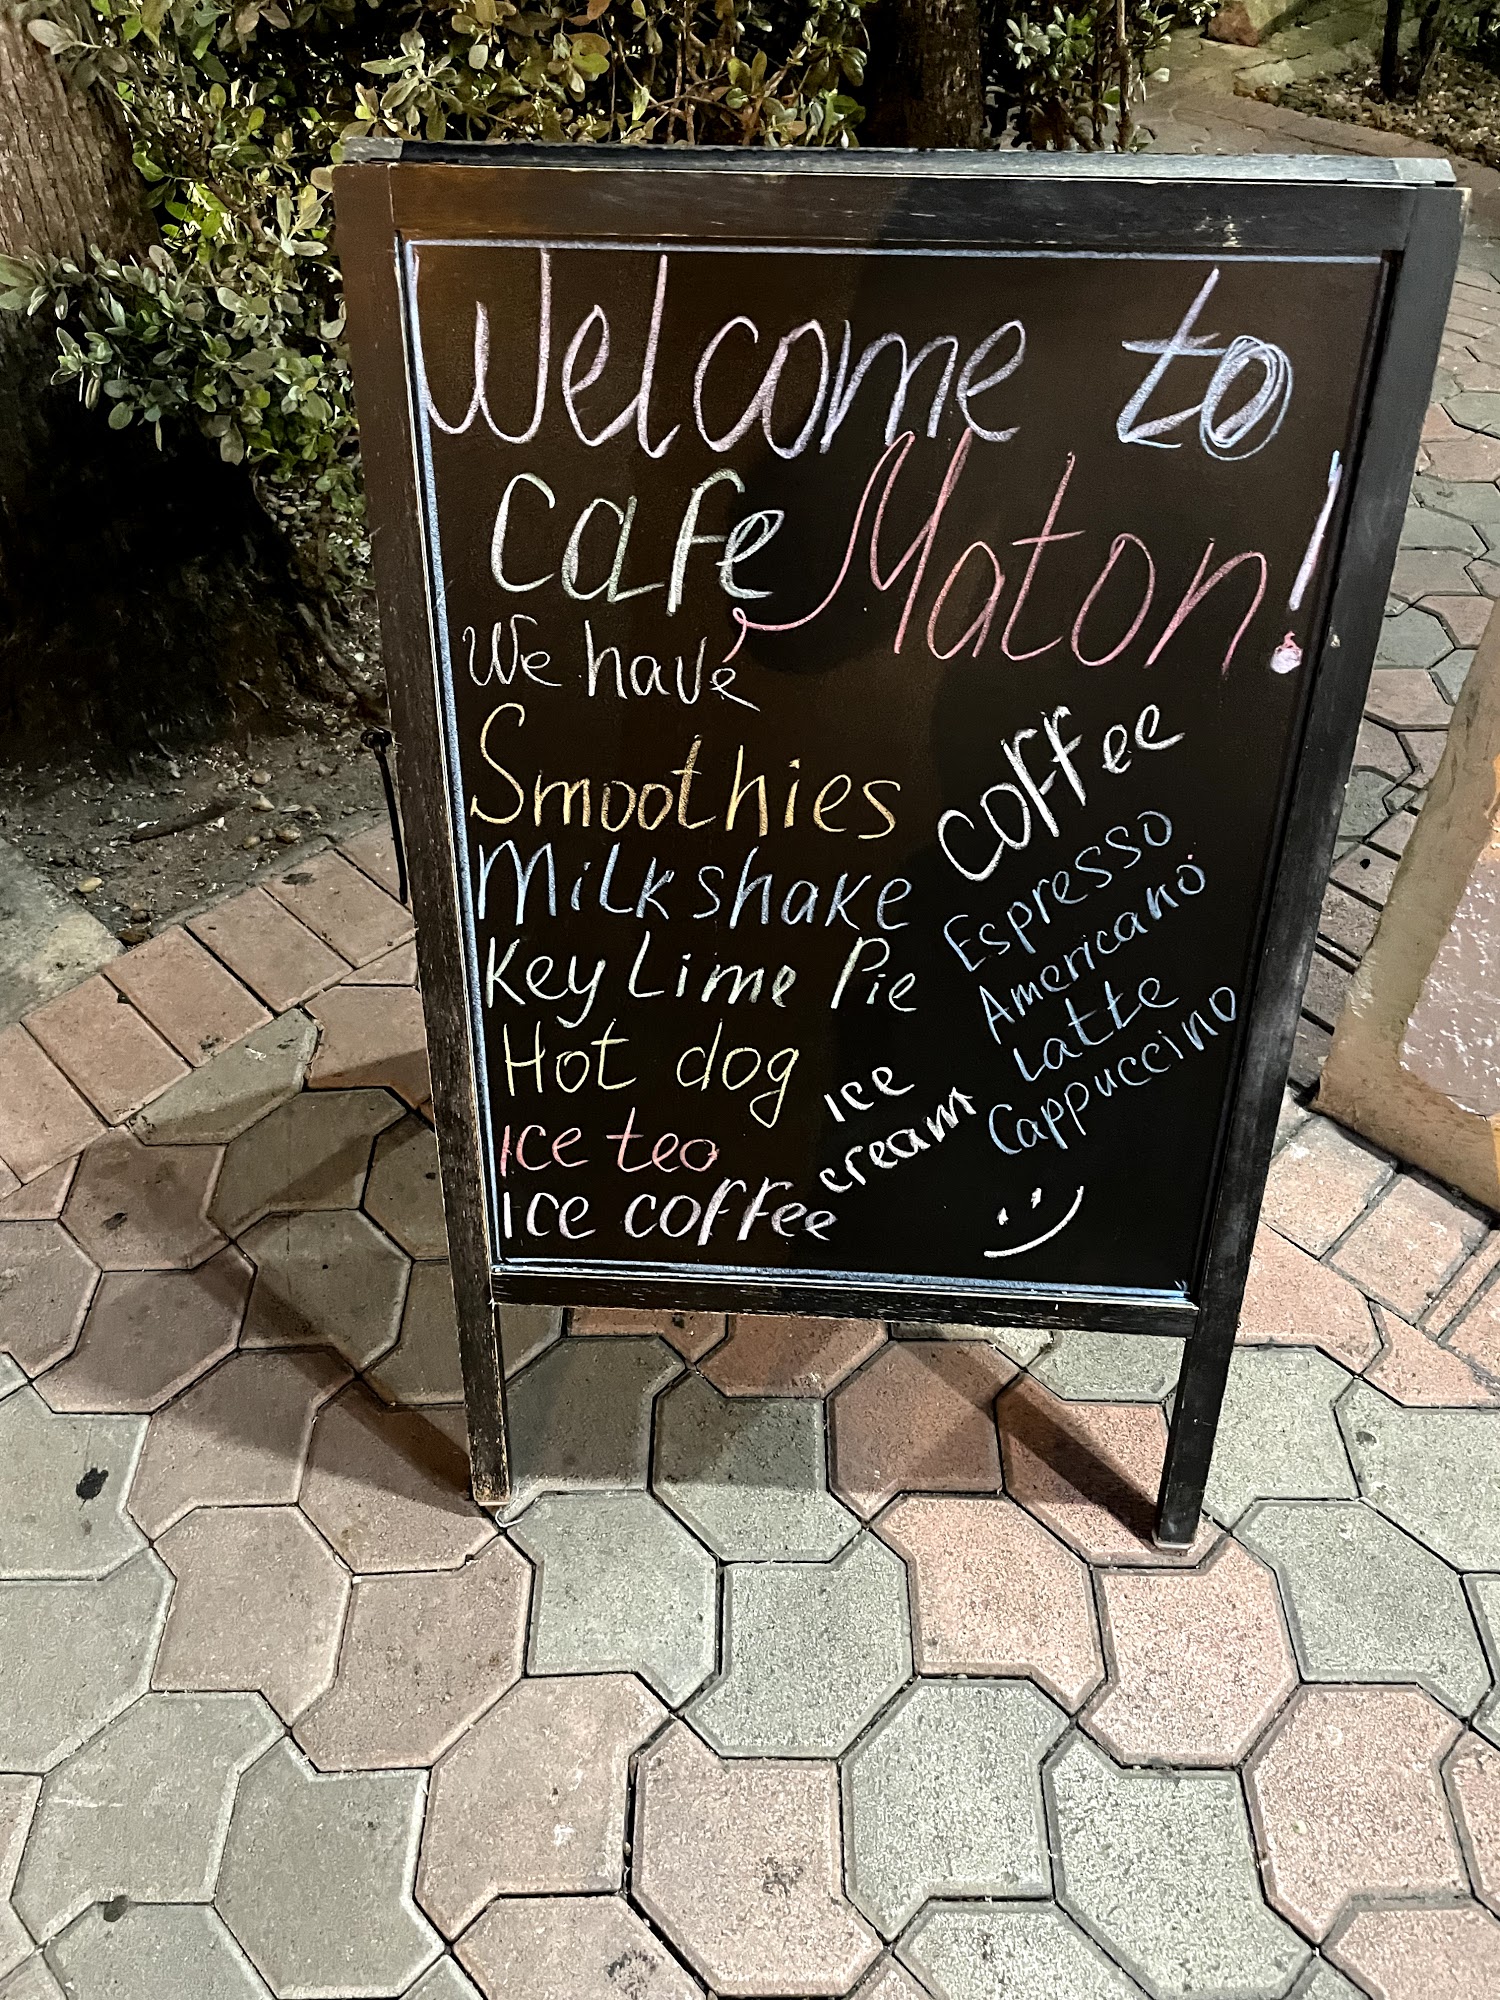 Welcome to
Cafe Maton!
We have
Smoothies
Milkshake
Key Lime Pie
Hot dog
Ice teo
Ice coffee
Ice
cream
Coffee
Espresso
Americano
Latte
Cappuccino